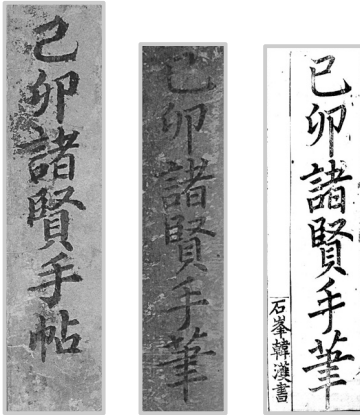 己卯諸賢手帖
己卯諸賢手筆
己卯諸賢手筆
石峯韓濩書